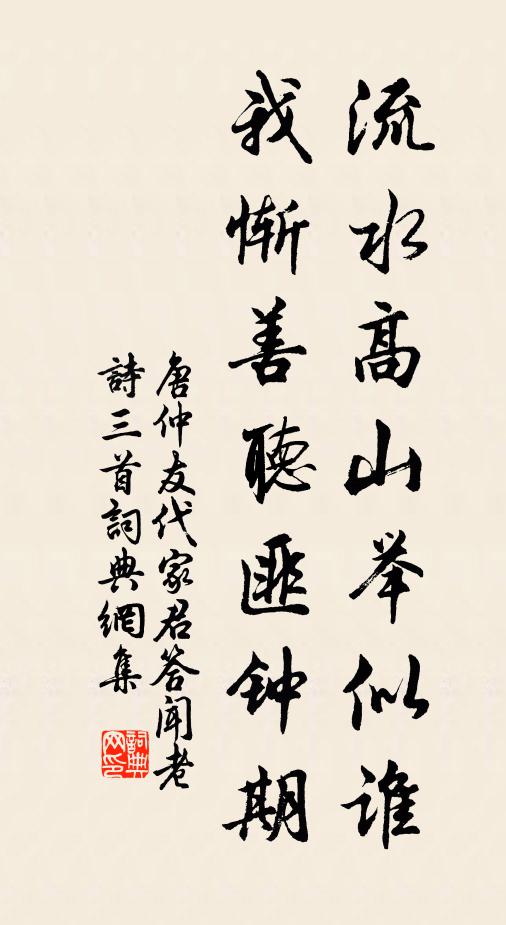 流水高山举似谁
我惭善聽匪钟期
唐仲友代家君答聞老
詩三首詞典網集
詞典网印